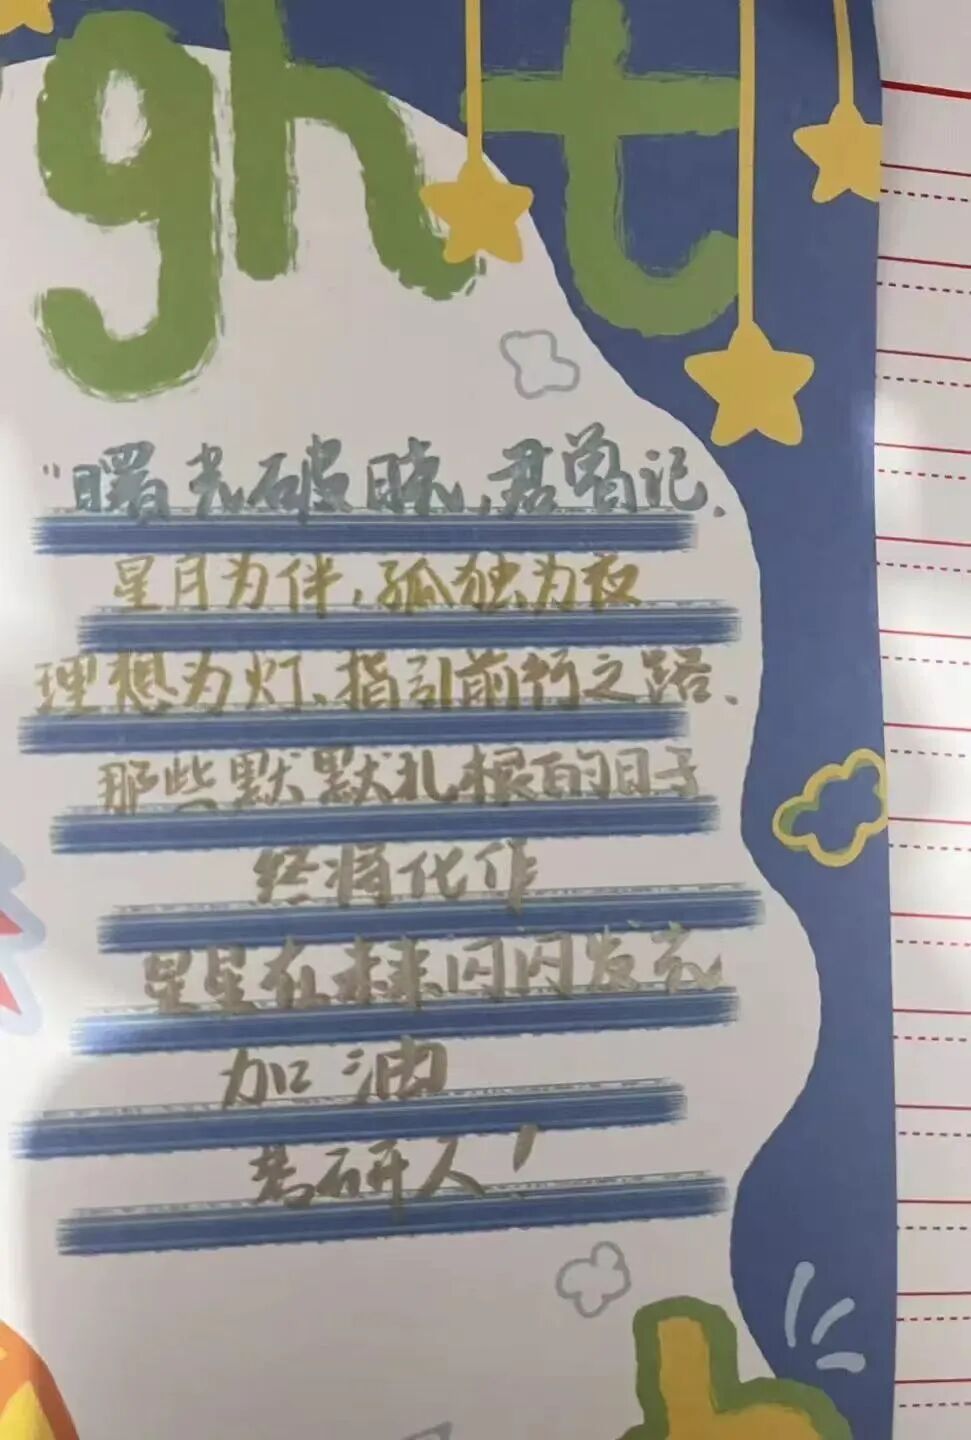 ght
“曙光破晓，君曾记，
星月为伴，孤独为夜
理想为灯、指引前行之路、
那些默默扎根的日子
终将化作
星星在未来闪闪发亮
加油
考研人！